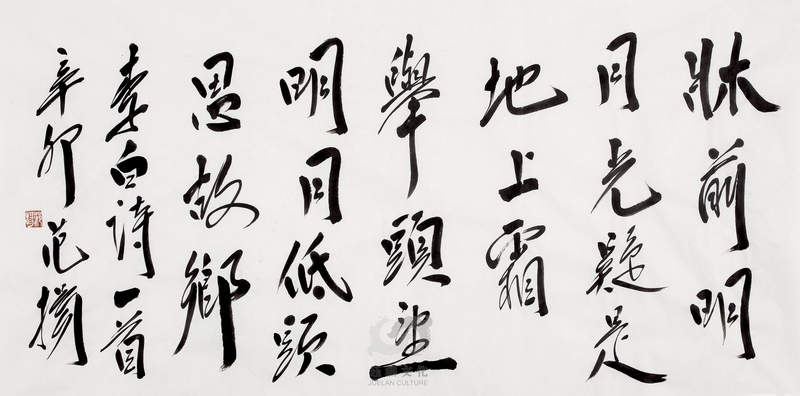 牀前明
月光疑是
地上霜
舉頭望
明月低頭
思故鄉
李白詩一首
辛卯范
文化
JUELAN CULTURE